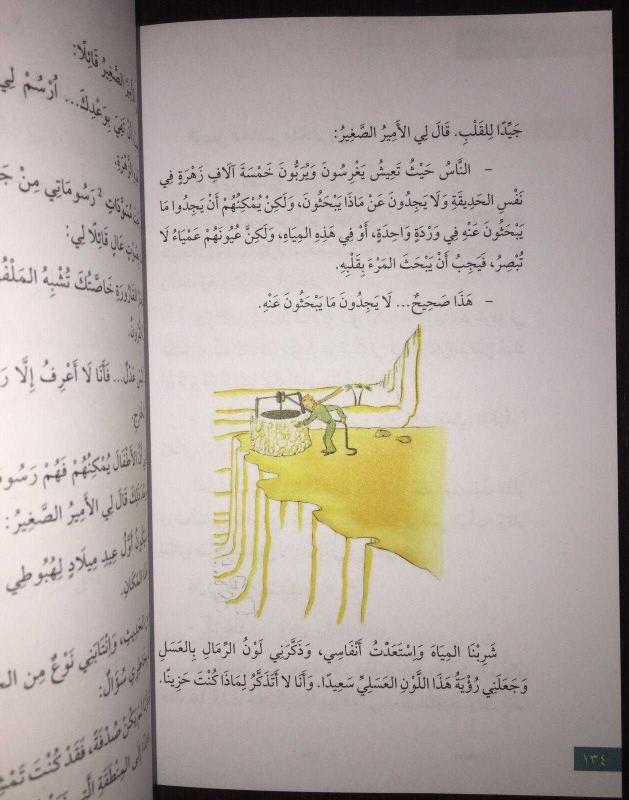 جَيِّدًا لِلقَلْبِ. قَالَ لِي الأَمِيرُ الصَّغِيرُ:
– النَّاسُ حَيْثُ تَعِيشُ يَغْرِسُونَ وَيُرَبُّونَ خَمْسَةَ آلَافِ زَهْرَةٍ فِي
نَفْسِ الحَدِيقَةِ وَلَا يَجِدُونَ عَنْ مَاذَا يَبْحَثُونَ، وَلَكِنْ يُمْكِنُهُمْ أَنْ يَجِدُوا مَا
يَبْحَثُونَ عَنْهُ فِي وَرْدَةٍ وَاحِدَةٍ، أَوْ فِي هَذِهِ المِيَاهِ، وَلَكِنَّ عُيُونَهُمْ عَمْيَاءُ لَا
تُبْصِرُ، فَيَجِبُ أَنْ يَبْحَثَ المَرْءُ بِقَلْبِهِ.
– هَذَا صَحِيحٌ... لَا يَجِدُونَ مَا يَبْحَثُونَ عَنْهُ.
شَرِبْنَا المِيَاهَ وَاِسْتَعَدْتُ أَنْفَاسِي، وَذَكَّرَنِي لَوْنُ الرِّمَالِ بِالعَسَلِ
وَجَعَلَنِي رُؤْيَةُ هَذَا اللَّوْنِ العَسَلِيِّ سَعِيدًا. وَأَنَا لَا أَتَذَكَّرُ لِمَاذَا كُنْتَ حَزِينًا.
١٣٤
الصَّغِيرُ قَائِلًا:
بِوَعْدِكَ... اُرْسُمْ لِي
الزَّهْرَةِ.
رَسُومَاتِي مِنْ
عَالٍ قَائِلًا لِي:
خَاصَّتُكَ تُشْبِهُ
عَدْلٌ... فَأَنَا لَا أَعْرِفُ إِلَّا
الأَطْفَالَ يُمْكِنُهُمْ فَهْمَ
قَالَ لِي الأَمِيرُ الصَّغِيرُ:
أَوَّلَ عِيدِ مِيلَادٍ لِهُبُوطِي
المَكَانِ.
وَانْتَابَنِي نَوْعٌ مِن
سُؤَالٌ:
صُدْفَةً، فَقَدْ كُنْتَ
إِلَى المِنْطَقَةِ